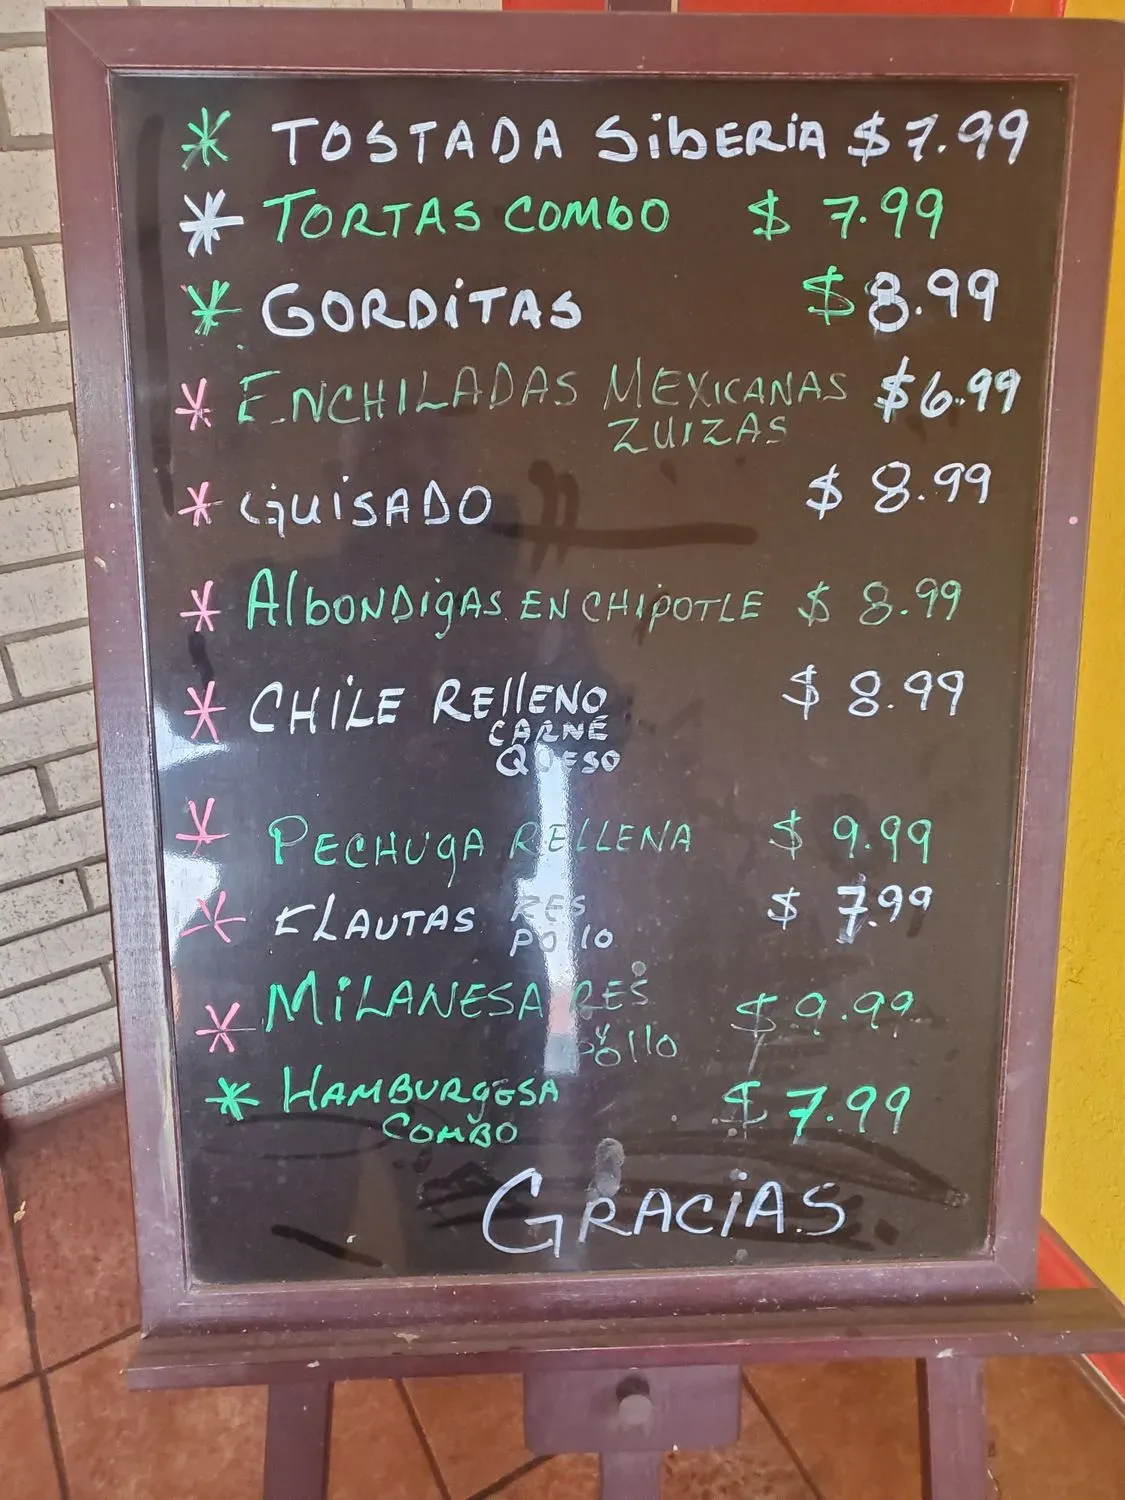 * TOSTADA SibERiA $7.99
* TORTAS COMbO $ 7.99
* GORDiTAS $8.99
* ENCHILADAS MEXICANAS $6.99
ZUIZAS
* GUiSADO $ 8.99
* AlbONDigAS EN CHiPOTLE $ 8.99
* CHiLE REllENO $ 8.99
CARNE
QUESO
* PECHUgA RELLENA $ 9.99
* FLAUTAS RES $ 7.99
POllO
* MiLANESA RES $ 9.99
y
POllO
* HAMBURgESA $ 7.99
COMBO
GRACiAS